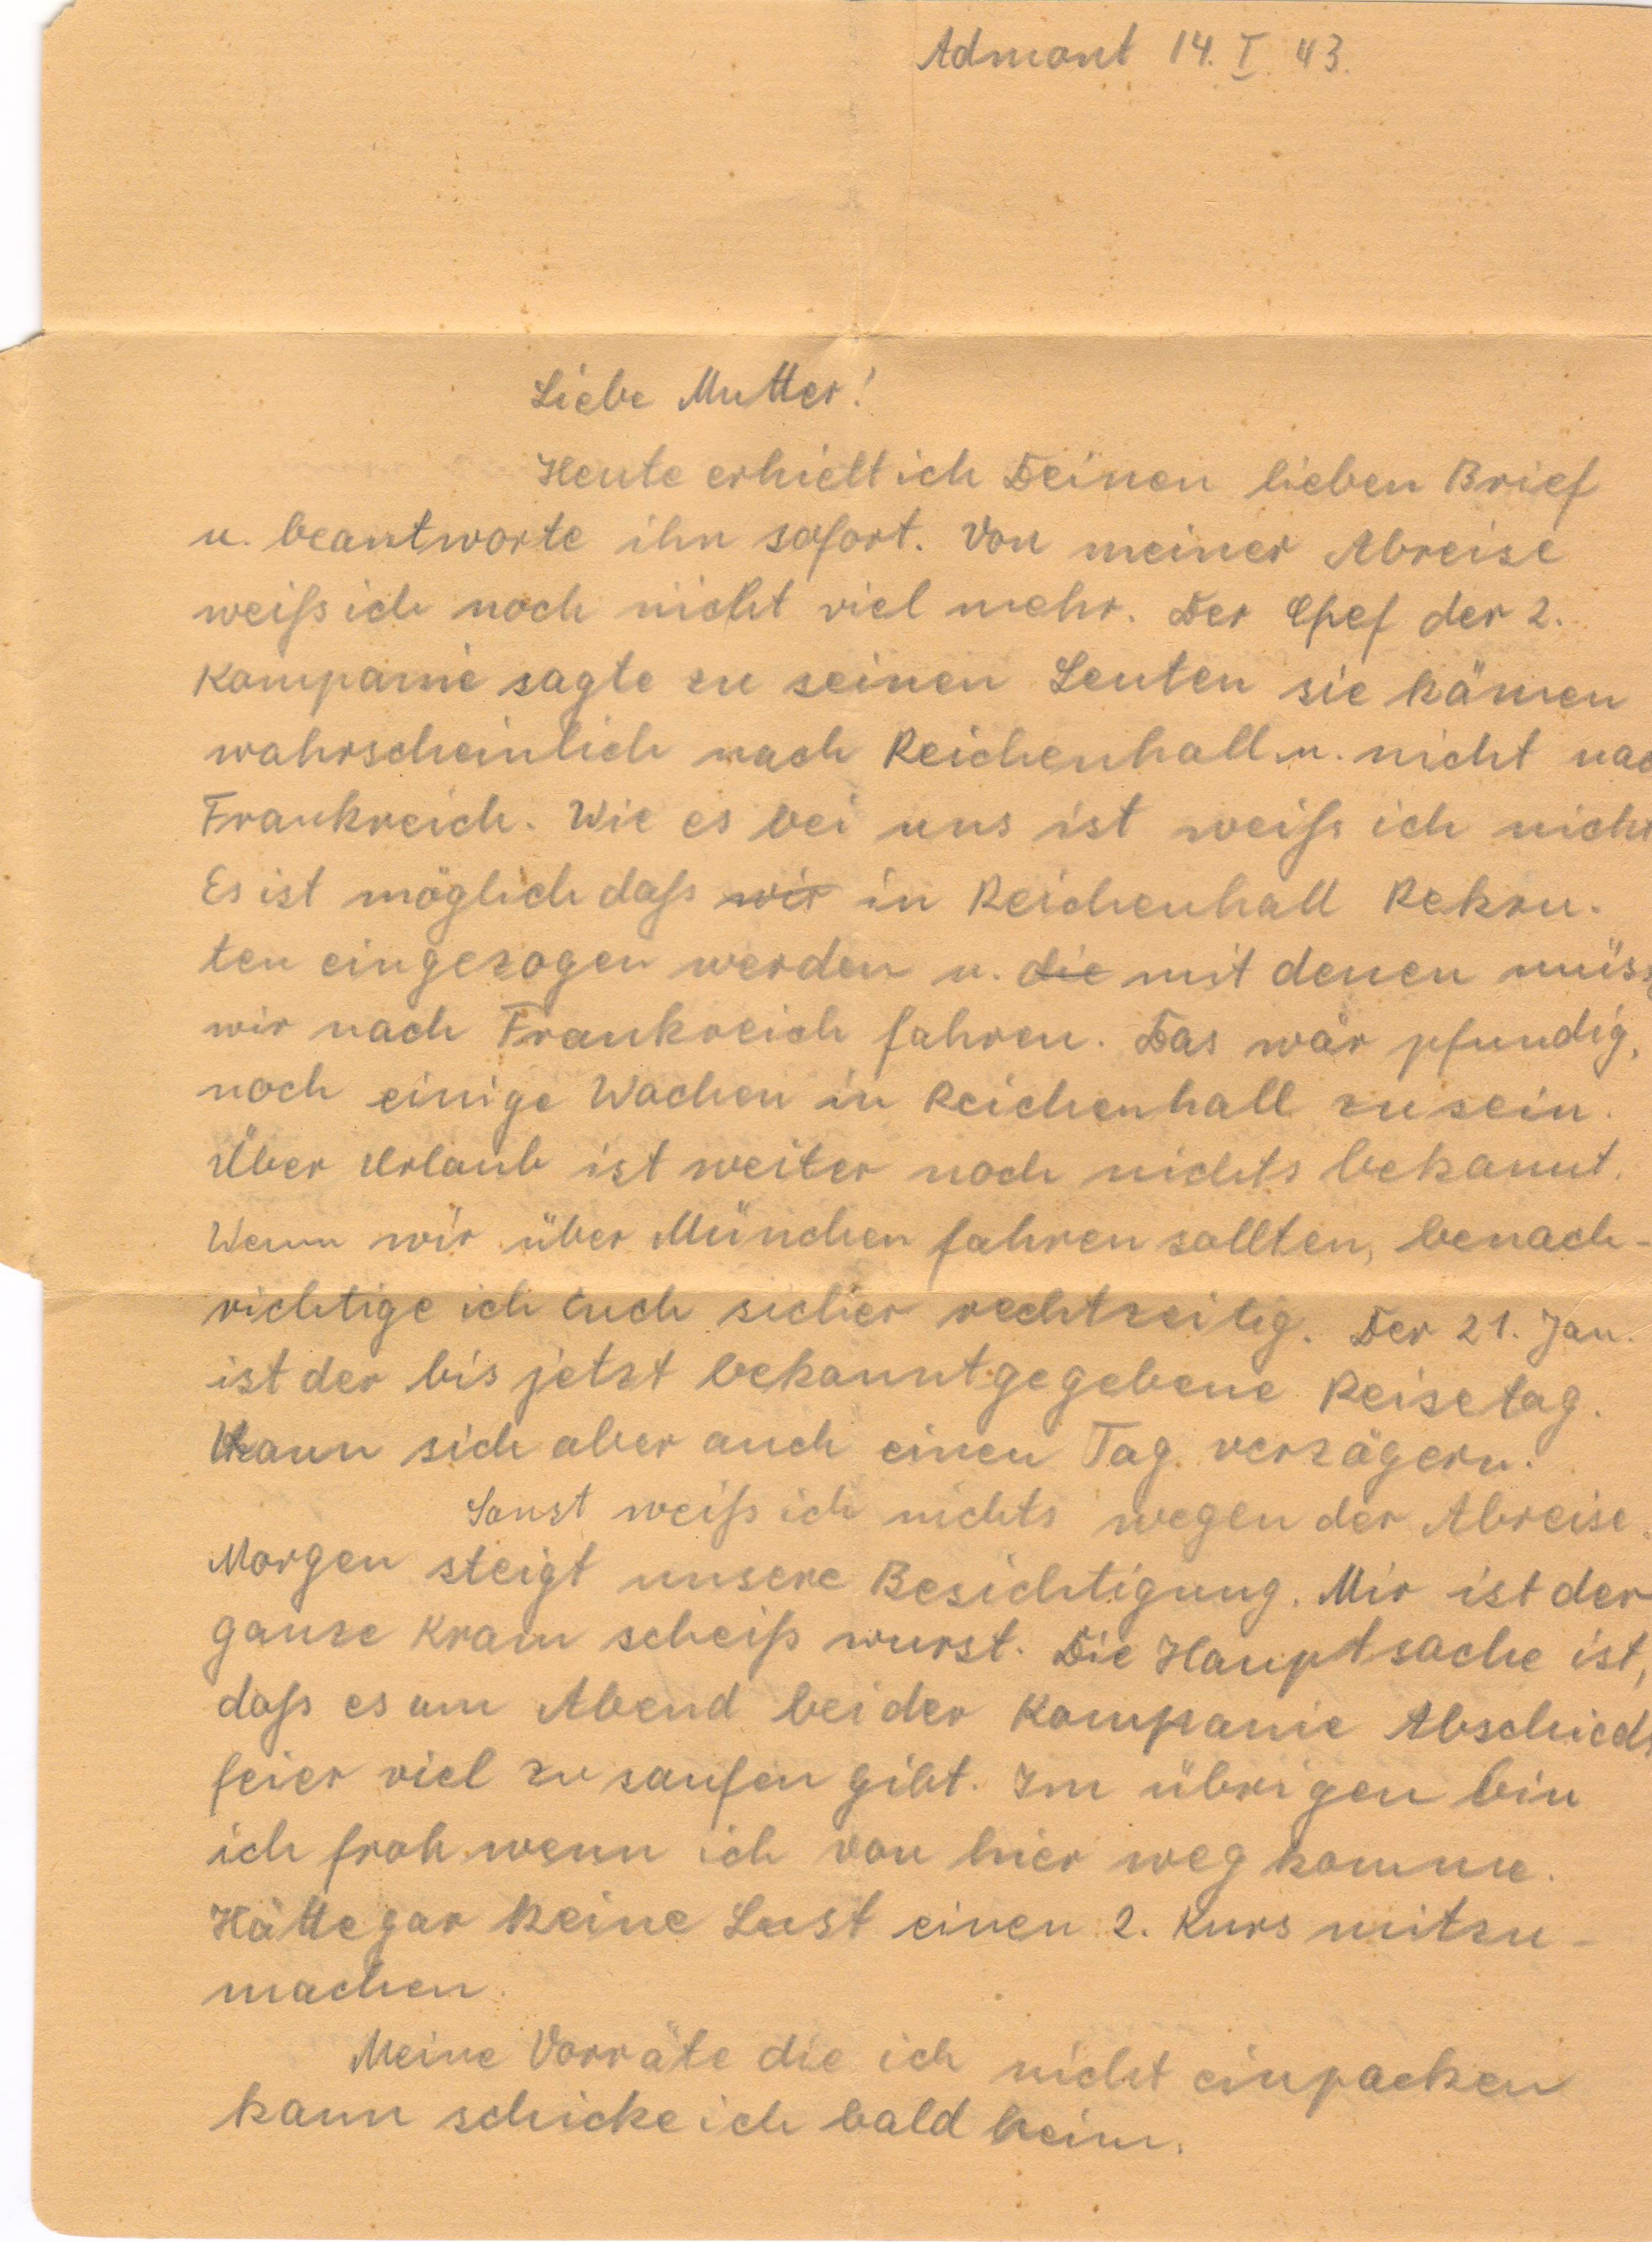 Admont 14. I. 43.
Liebe Mutter!
Heute erhielt ich Deinen lieben Brief
u. beantworte ihn sofort. Von meiner Abreise
weiß ich noch nicht viel mehr. Der Chef der 2.
Kompanie sagte zu seinen Leuten sie kämen
wahrscheinlich nach Reichenhall u. nicht nac
Frankreich. Wie es bei uns ist weiß ich nicht
Es ist möglich daß wir in Reichenhall Rekru-
ten eingezogen werden u. die mit denen müss
wir nach Frankreich fahren. Das wär pfundig,
noch einige Wochen in Reichenhall zu sein.
Über Urlaub ist weiter noch nichts bekannt.
Wenn wir über München fahren sollten, benach-
richtige ich Euch sicher rechtzeitig. Der 21. Jan.
ist der bis jetzt bekanntgegebene Reisetag.
Kann sich aber auch einen Tag verzögern.
Sonst weiß ich nichts wegen der Abreise.
Morgen steigt unsere Besichtigung. Mir ist der
ganze Kram scheiß wurst. Die Hauptsache ist,
daß es am Abend bei der Kompanie Abschieds
feier viel zu saufen gibt. Im übrigen bin
ich froh wenn ich von hier weg komme.
Hätte gar keine Lust einen 2. Kurs mitzu-
machen.
Meine Vorräte die ich nicht einpacken
kann schicke ich bald heim.